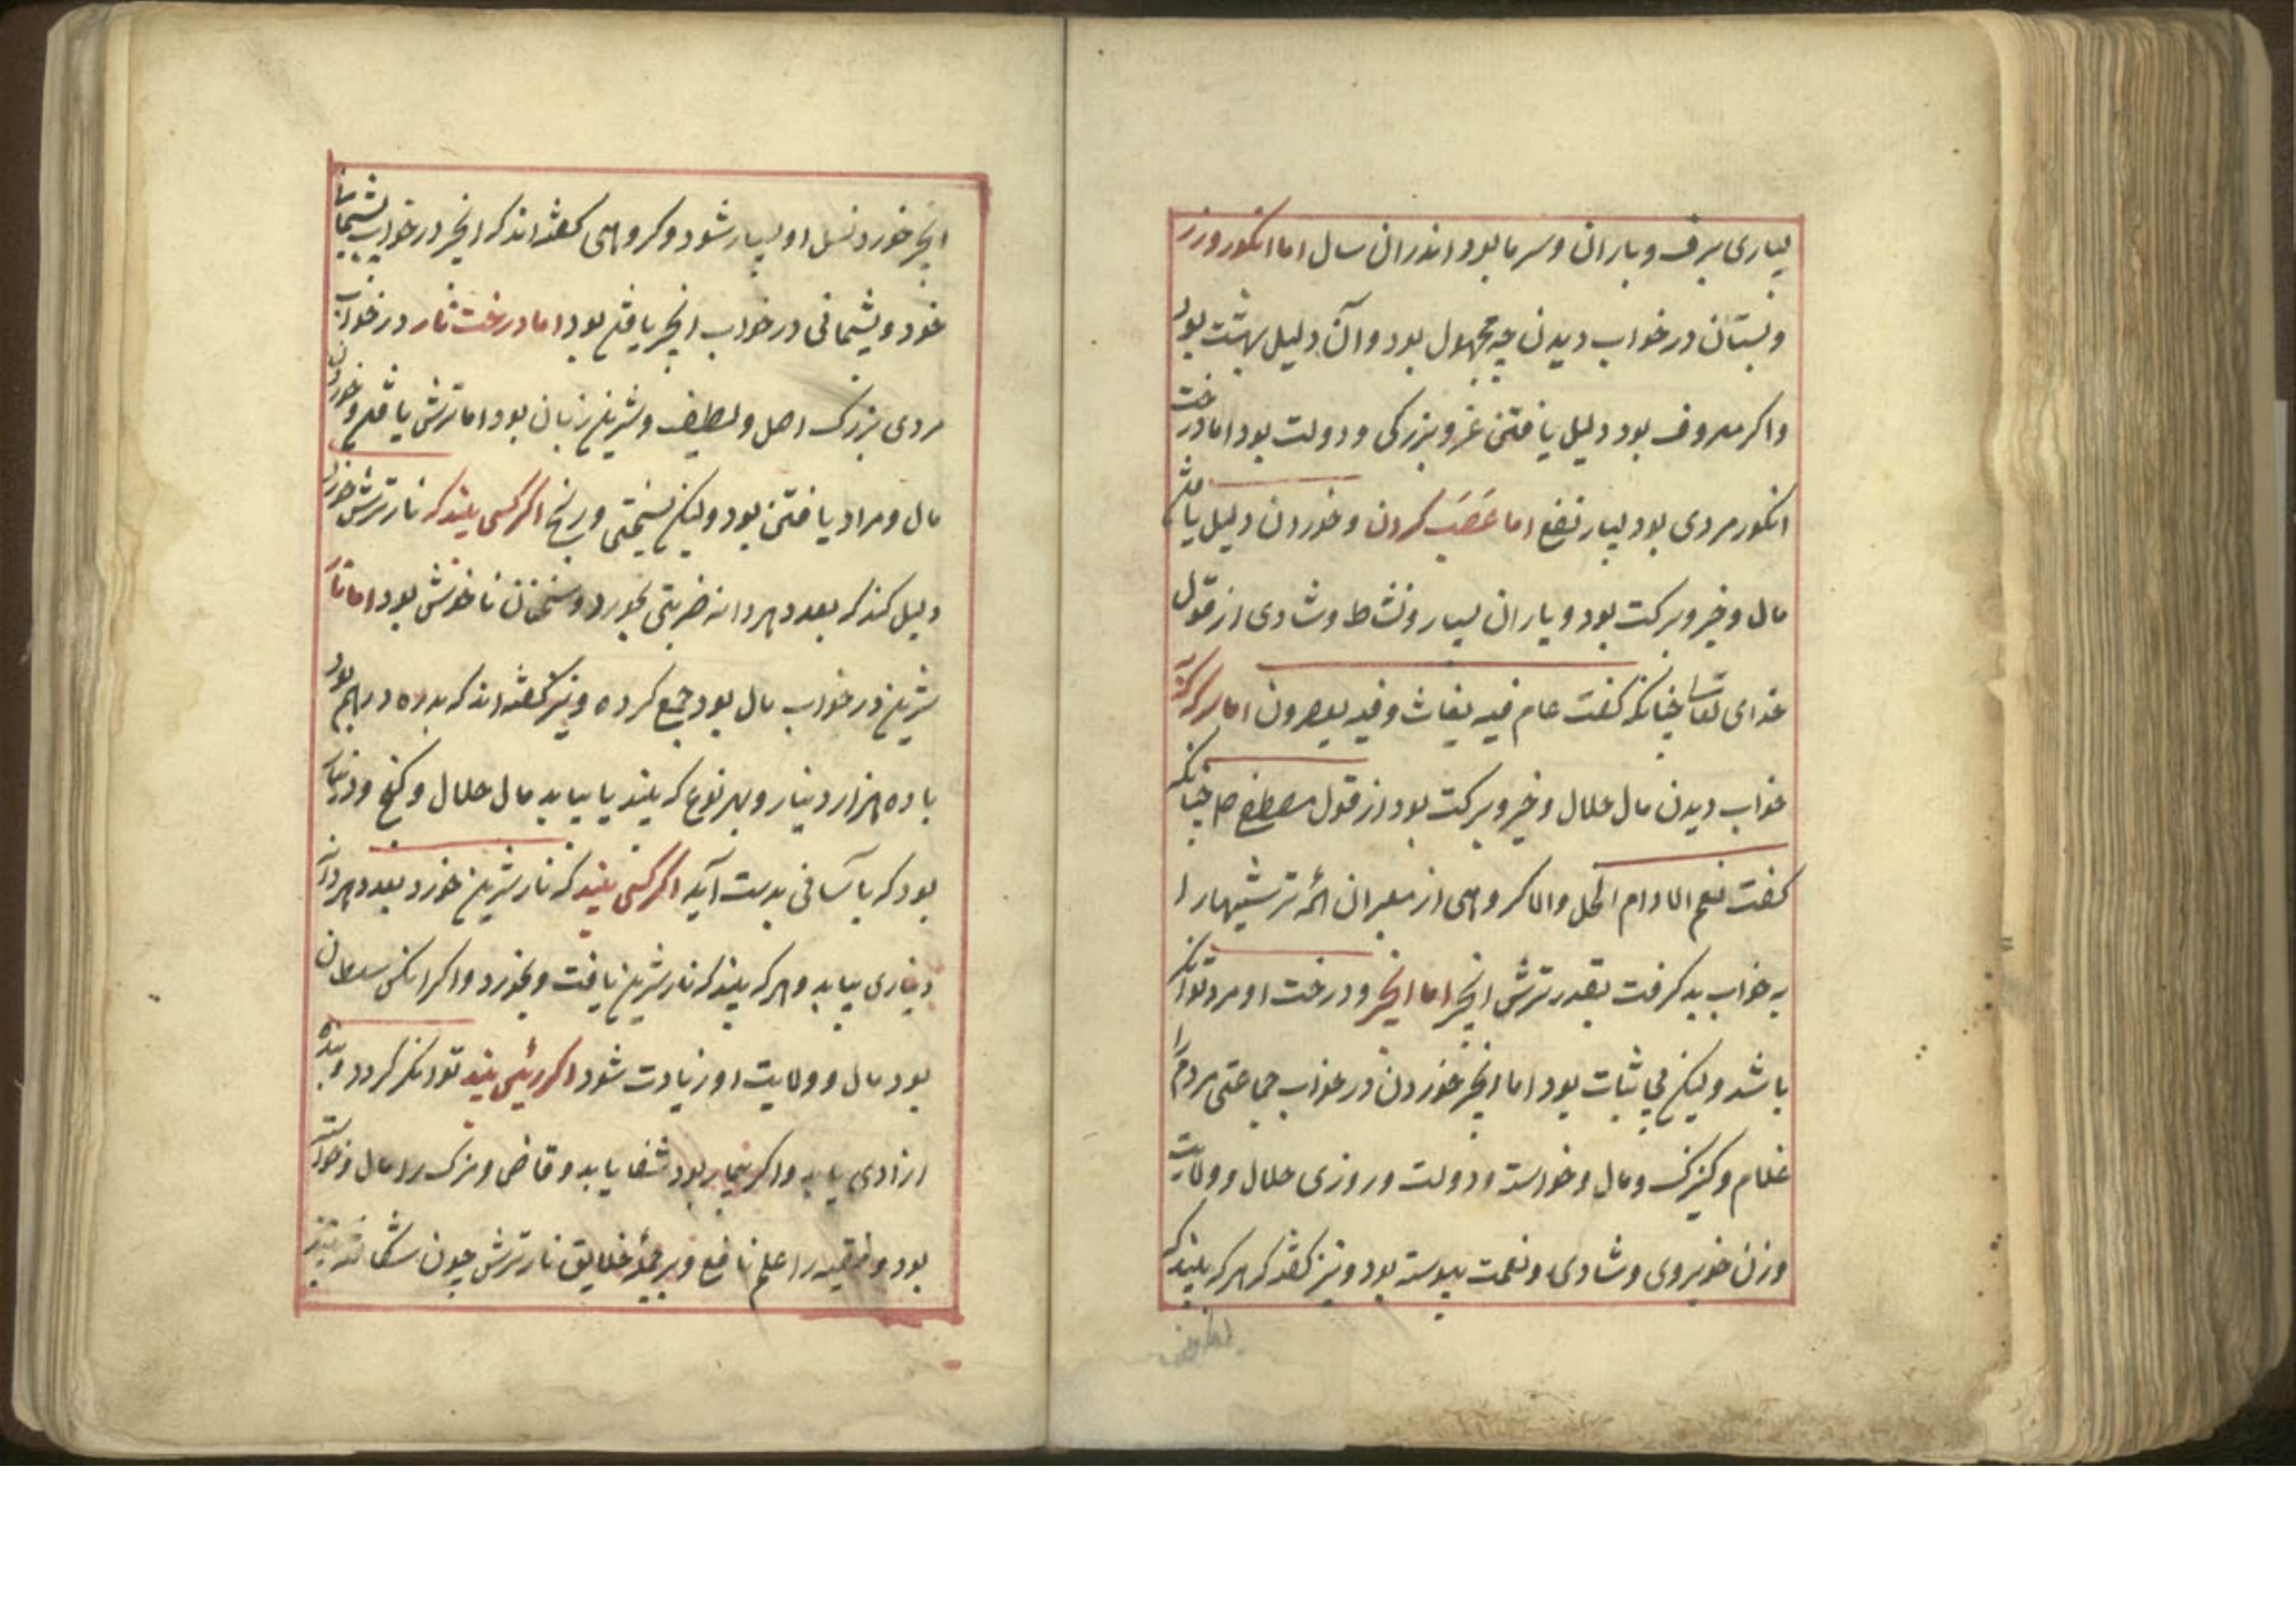 بسیاری برف و باران و سرما بود اندران سال اما انکور ورز
و بستان در خواب دیدن چه مجهول بود و آن دلیل بهشت بود
واکر معروف بود دلیل یافتن عز و بزرکی و دولت بود اما درخت
انکور مردی بود بسیار نفع اما عَصَب کردن و خوردن دلیل یافتن
مال و خیر و برکت بود و یاران بسیار و نشاط و شادی از قول
خدای تعا چنانکه کفت عام فیه یغاث و فیه یعصرون اما سرکه
خواب دیدن مال حلال و خیر و برکت بود از قول مصطفی ص چنانکه
کفت نعم الادام الخل والا کروهی از معبران اند ترشیها را
به خواب بد کرفت بقدر ترش انجیر اما انجیر و درخت او مرد توانکر
باشد ولیکن بی ثبات بود اما انجیر خوردن در خواب جماعتی مردم را
غلام و کنیزک و مال و خواسته و دولت و روزی حلال و ولایت
وزن خوبروی و شادی و نعمت پیوسته بود و نیز کفته که هر که بیند که
انجیر خورد نسل او بسیار شود و کروهی کفته اند که انجیر در خواب پشیمانی
خود و پشیمانی در خواب انجیر یافتن بود اما درخت نار در خواب
مردی بزرک اصل و لطیف و شیرین زبان بود اما ترش یافتن و خوردن
مال و مراد یافتن بود ولیکن بسختی و رنج اکر کسی بیند که نار ترش خورد
دلیل کند که بعدد هر دانه ضربتی بخورد و سخنان ناخوش بود اما نار
شیرین در خواب مال بود جمع کرده و نیز کفته اند که بدره درهم بود
یا ده هزار دینار و بهر نوع که بیند یا بیابد مال حلال و کنج و دینار
بود که بآسانی بدست آید اکر کسی بیند که نار شیرین خورد بعدد هر دانه
دیناری بیابد و هر که بیند که نار شیرین یافت و بخورد واکر انکس سلطان
بود مال و ولایت او زیادت شود اکر رئیس بیند توانکر کردد و بنده
ازادی یابد واکر بیمار بود شفا یابد و قاضی و مزک را مال و خواسته
بود و فقیه را علم نافع و بر جملهٔ خلایق نار ترش چون شکافته بیند